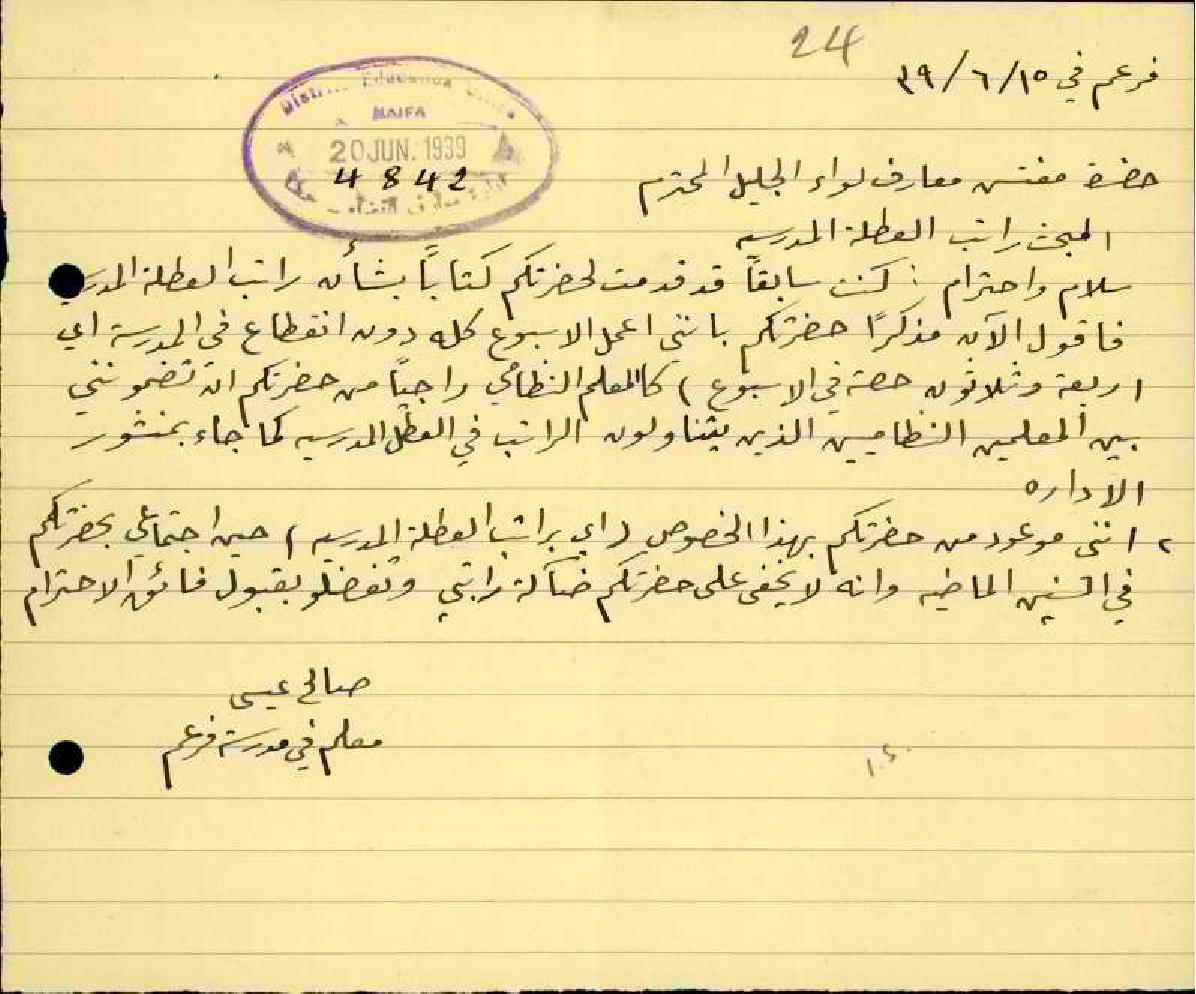 24
فرعم في ١٥/ ٦/ ٣٩
District Education Office
HAIFA
20 JUN. 1939
4842
حضرة مفتش معارف لواء الجليل المحترم
المبحث راتب العطلة المدرسيه
سلام واحترام : كنت سابقاً قد قدمت لحضرتكم كتاباً بشأن راتب العطلة
فاقول الآن مذكرًا حضرتكم بانني اعمل الاسبوع كله دون انقطاع في المدرسة اي
اربعة وثلاثون حصة في الاسبوع ) كالمعلم النظامي راجياً من حضرتكم ان تضمونني
بين المعلمين النظاميين الذين يتناولون الراتب في العطل المدرسيه كما جاء بمنشور
الاداره
٢ انني موعود من حضرتكم بهذا الخصوص ( اي براتب العطلة المدرسيه ) حين اجتماعي بحضرتكم
في السنين الماضيه وانه لا يخفى على حضرتكم ضآلة راتبي وتفضلو بقبول فائق الاحترام
صالح عيسى
معلم في مدرسة فرعم